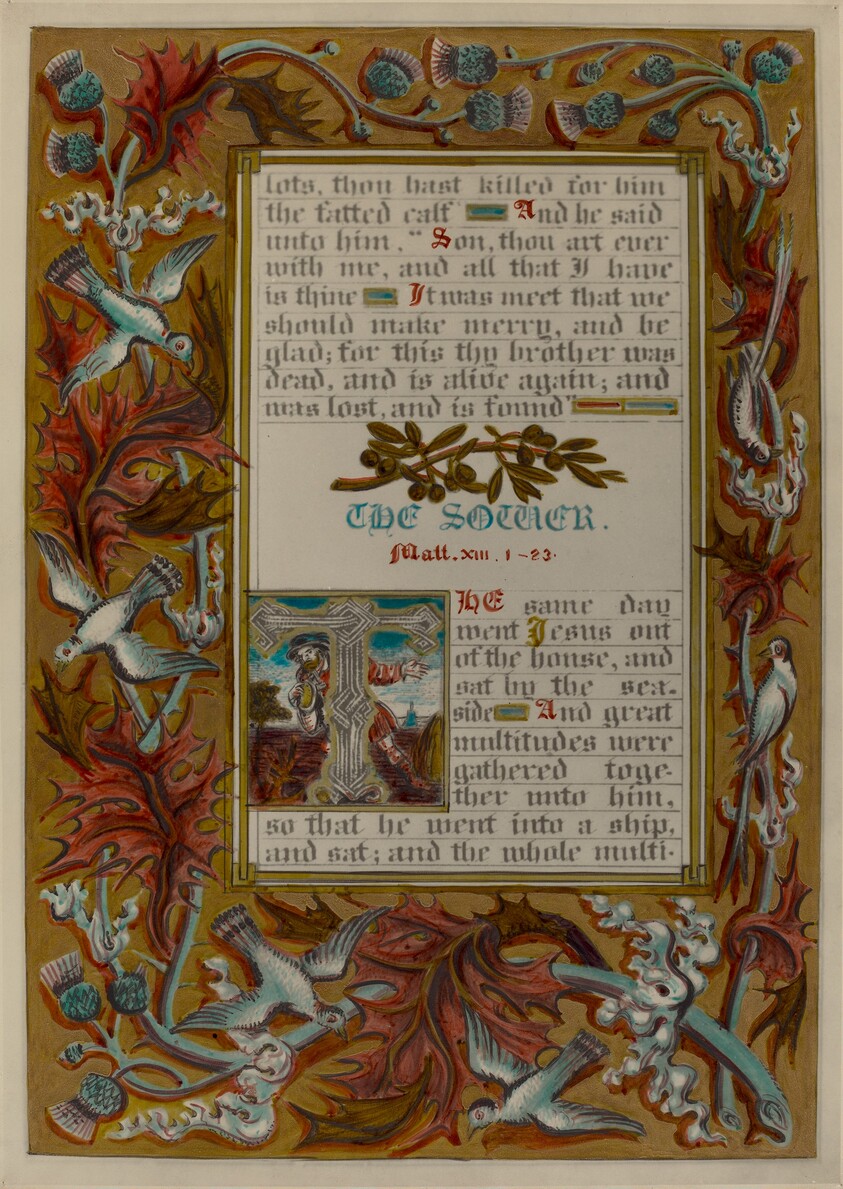 lots, thou hast killed for him
the fatted calf And he said
unto him, “Son, thou art ever
with me, and all that I have
is thine It was meet that we
should make merry, and be
glad; for this thy brother was
dead, and is alive again; and
was lost, and is found”
THE SOWER.
Matt. XIII. 1-23.
THE same day
went Jesus out
of the house, and
sat by the sea-
side And great
multitudes were
gathered toge-
ther unto him,
so that he went into a ship,
and sat; and the whole multi-